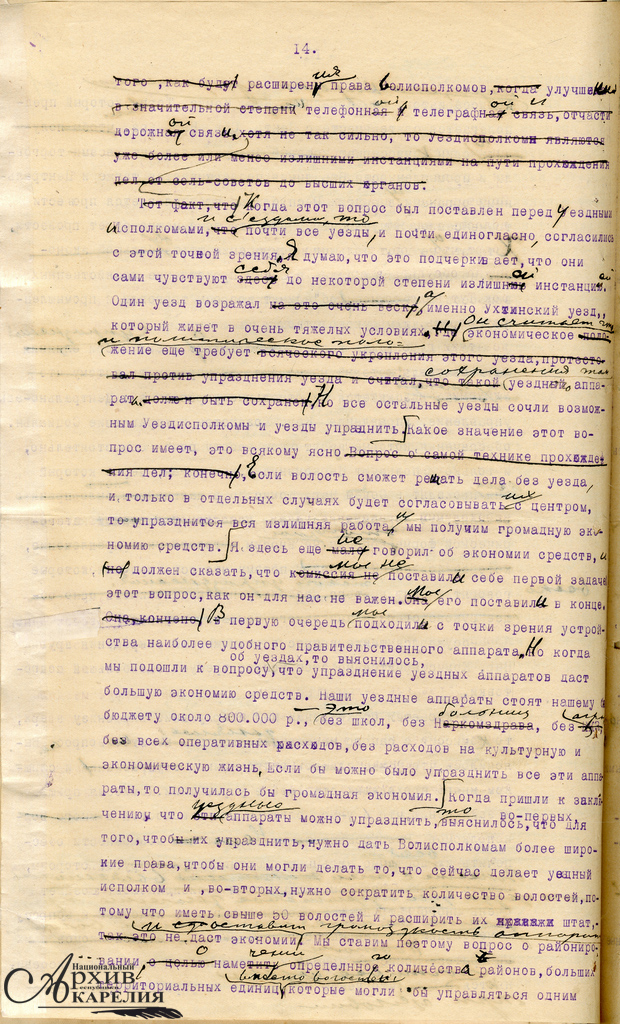 14.
того, как будут расширения права Волисполкомов, когда улучше
в значительной степени телефонной телеграфной и связь, отчасти
дорожной связи, хотя не так сильно, то Уездисполкомы являются
уже более или менее излишними инстанциями на пути прохождения
дел от сель-советов до высших органов.
Тот факт, что Когда этот вопрос был поставлен перед Уездными
и с'ездами, то
Исполкомами, что почти все уезды, и почти единогласно, согласились
с этой точкой зрения, Я думаю, что это подчеркивает, что они
сами чувствуют здесь себя до некоторой степени излишней инстанцией.
Один уезд возражал на это очень веско, а именно Ухтинский уезд,
который живет в очень тяжелых условиях, Он считает что экономическое поло-
и политическое поло-
жение еще требует всяческого укрепления этого уезда, протесто-
вал против упразднения уезда и считал, что такой уездный аппа-
сохранения
рат должен быть сохранен, Но все остальные уезды сочли возмож-
ным Уездисполкомы и уезды упразднить. Какое значение этот во-
прос имеет, это всякому ясно. Вопрос о самой технике прохожде-
ния дел; конечно, Если волость сможет решать дела без уезда,
и, только в отдельных случаях будет согласовывать их с центром,
то упразднится вся излишняя работа, и мы получим громадную эко-
номию средств. Я здесь еще мало не говорил об экономии средств, и
но должен сказать, что комиссия не мы не поставили себе первой задачей
этот вопрос, как он для нас не важен. Она мы его поставили в конце.
Она, кончено, В первую очередь мы подходили с точки зрения устрой-
ства наиболее удобного правительственного аппарата, Но когда
мы подошли к вопросу об уездах, то выяснилось, что упразднение уездных аппаратов даст
большую экономию средств. Наши уездные аппараты стоят нашему
бюджету около 800.000 р., — Это без школ, без Наркомздрава, больниц, без
без всех оперативных расходов, без расходов на культурную и
экономическую жизнь, Если бы можно было упразднить все эти аппа-
раты, то получилась бы громадная экономия. Когда пришли к заклю-
чению, что эти уездные аппараты можно упразднить, то выяснилось, во-первых, что для
того, чтобы их упразднить, нужно дать Волисполкомам более широ-
кие права, чтобы они могли делать то, что сейчас делает уездный
исполком и, во-вторых, нужно сократить количество волостей, по-
тому что иметь свыше 50 волостей и расширить их штат,
и
громоздкость аппарата
так это не даст экономии. Мы ставим поэтому вопрос о райониро-
вании, с целью О наметить чении определенного количества районов, больших
вместо волостей
территориальных единиц, которые могли бы управляться одним
Национальный
АРХИВ
Республики
КАРЕЛИЯ